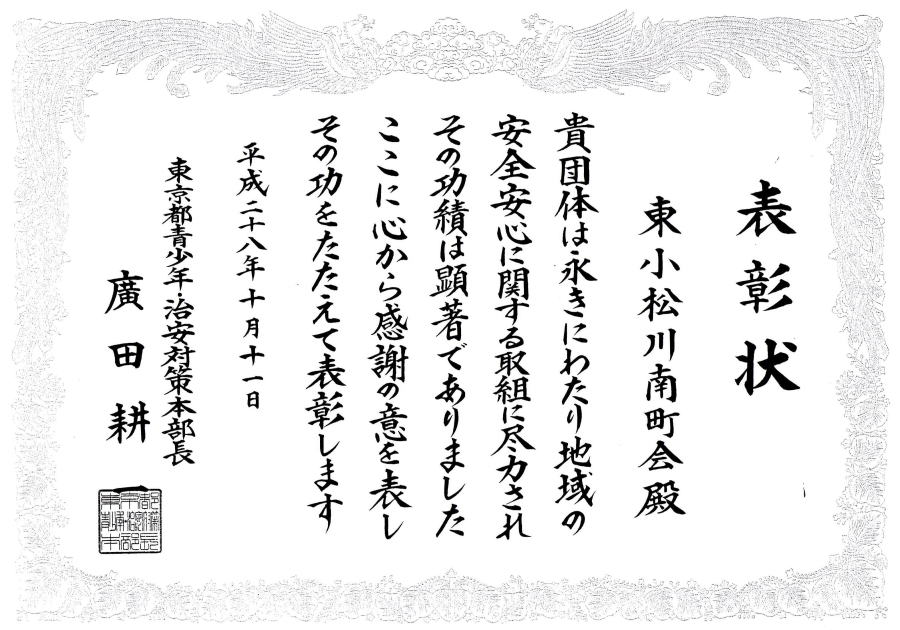 表彰状
東小松川南町会殿
貴団体は永きにわたり地域の
安全安心に関する取組に尽力され
その功績は顕著でありました
ここに心から感謝の意を表し
その功をたたえて表彰します
平成二十八年十月十一日
東京都青少年・治安対策本部長
廣田耕一